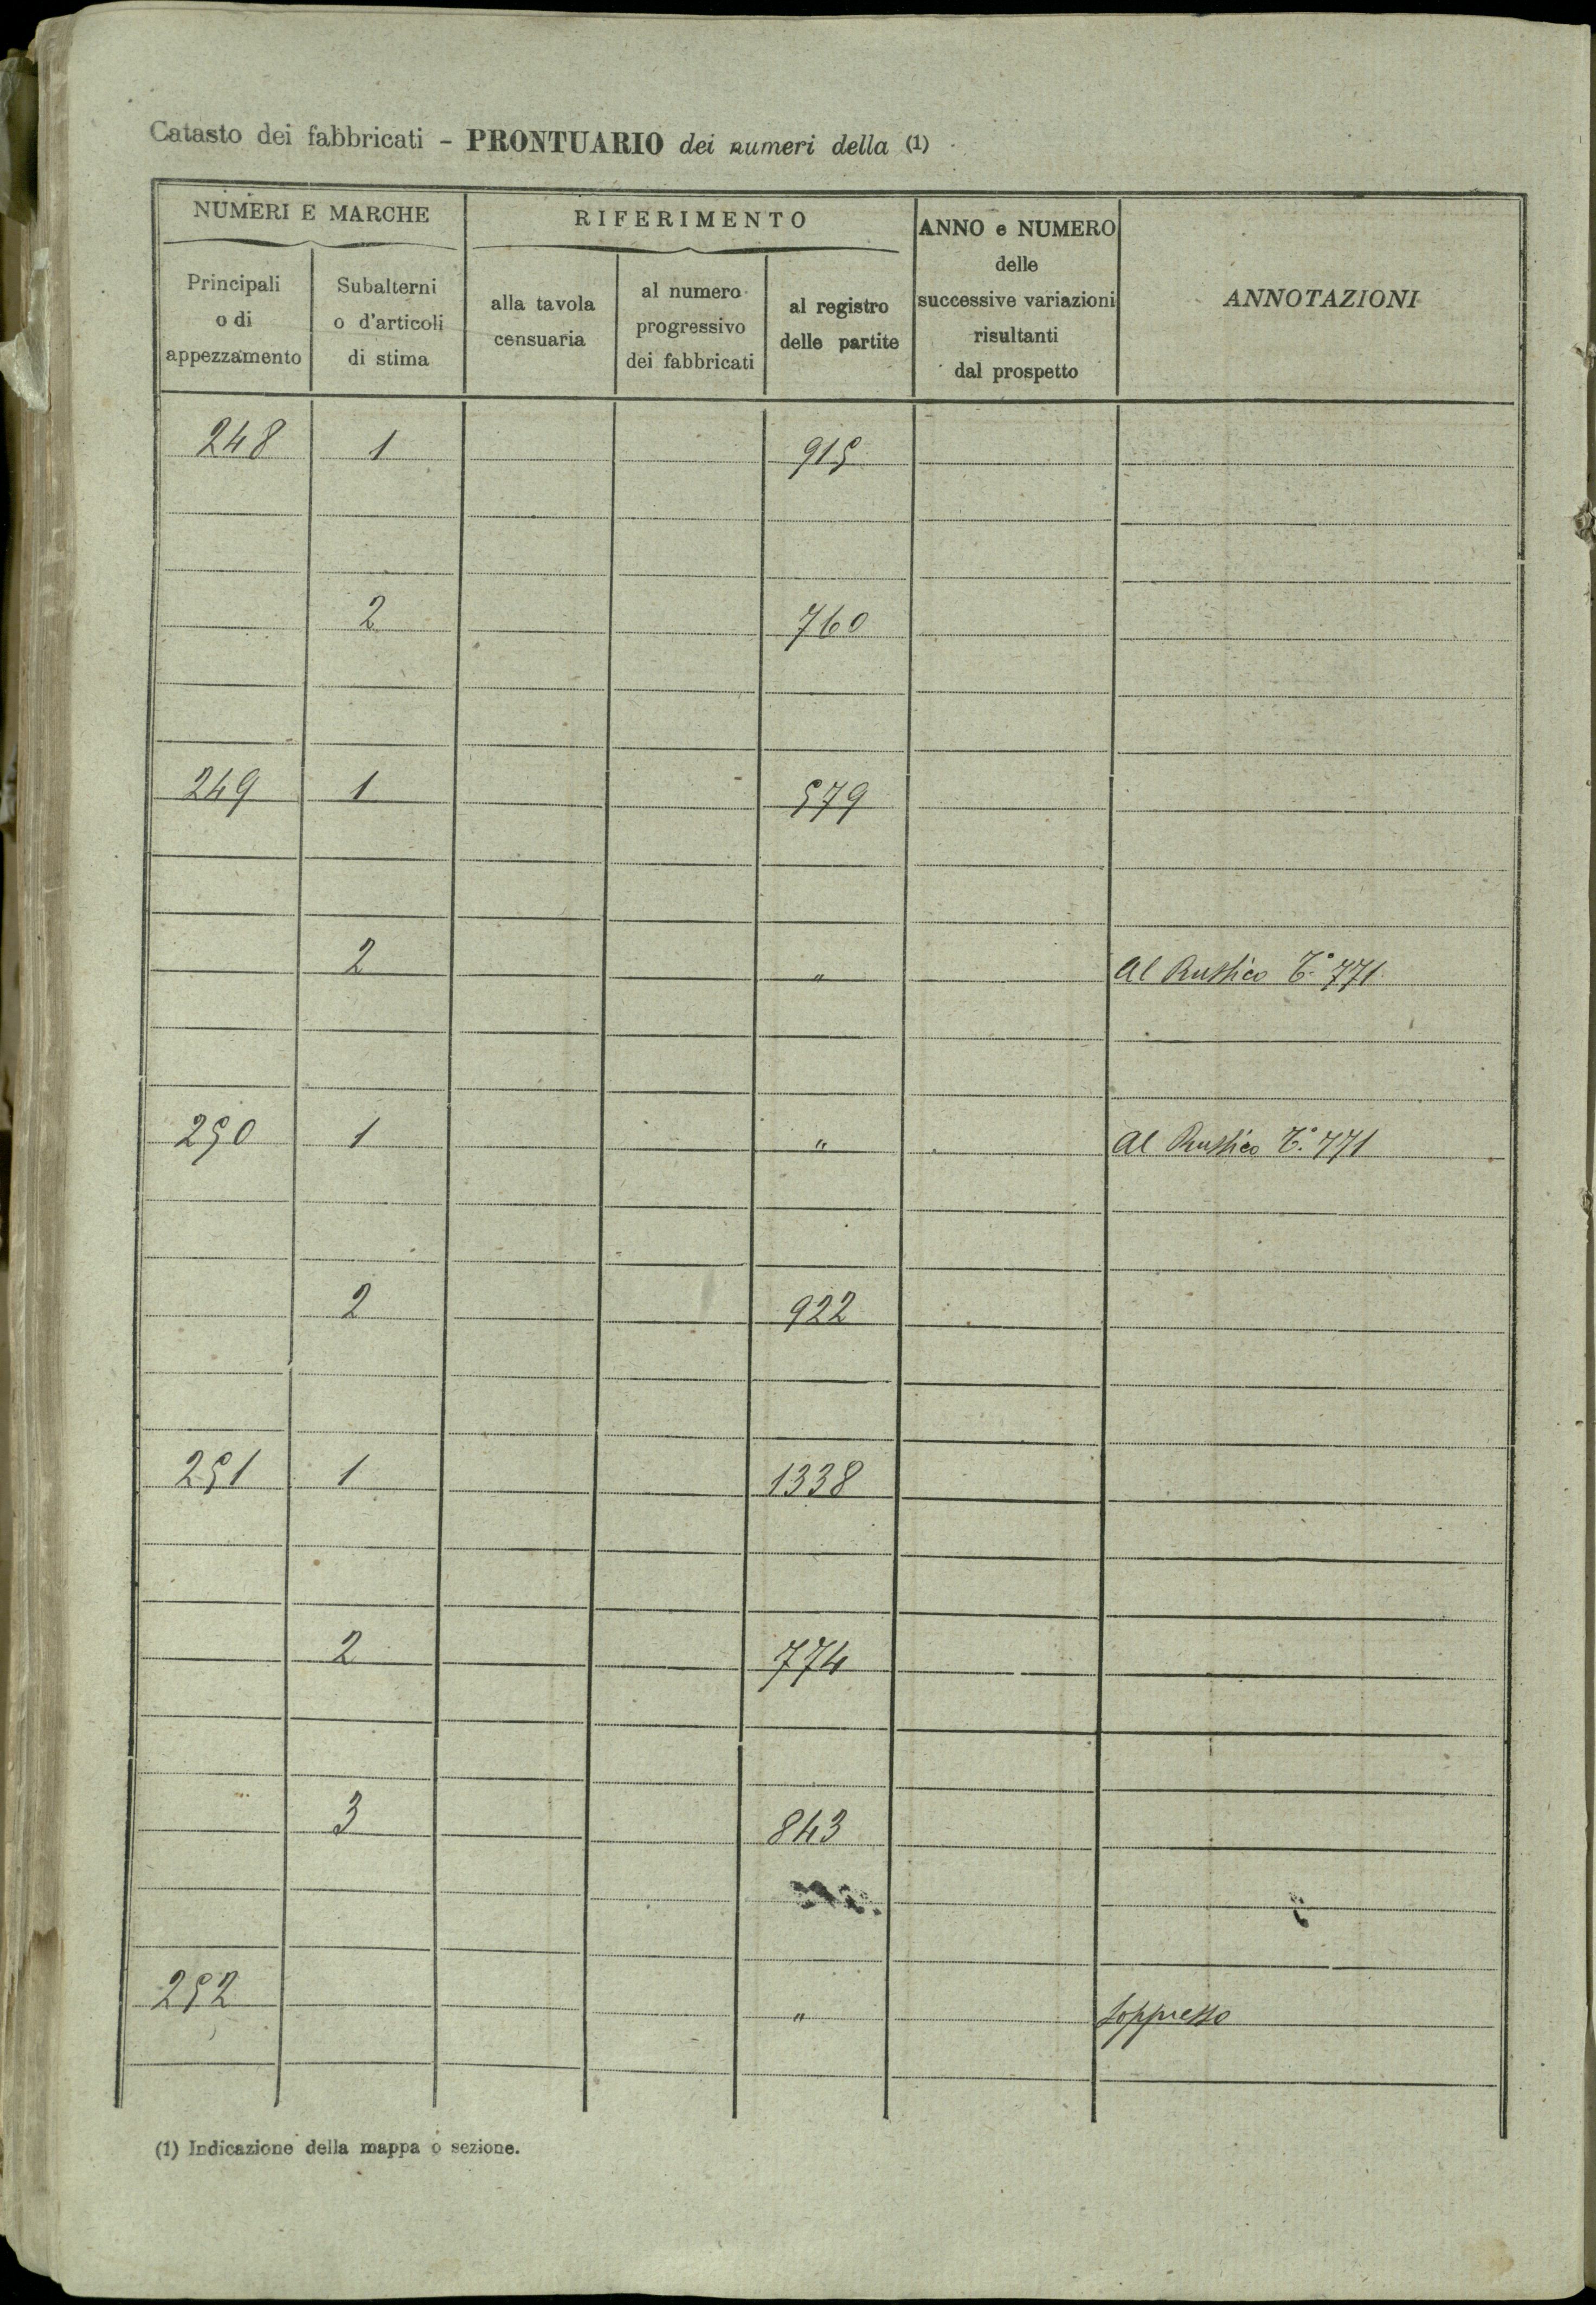 Catasto dei fabbricati - PRONTUARIO dei numeri della (1)
NUMERI E MARCHE
RIFERIMENTO
ANNO e NUMERO
delle
successive variazioni
risultanti
dal prospetto
ANNOTAZIONI
Principali
o di
appezzamento
Subalterni
o d'articoli
di stima
alla tavola
censuaria
al numero
progressivo
dei fabbricati
al registro
delle partite
248 1 915
2 760
249 1 579
2 " Al Rustico T.° 771
250 1 " Al Rustico T.° 771
2 922
251 1 1338
2 774
3 843
252 " Soppresso
(1) Indicazione della mappa o sezione.